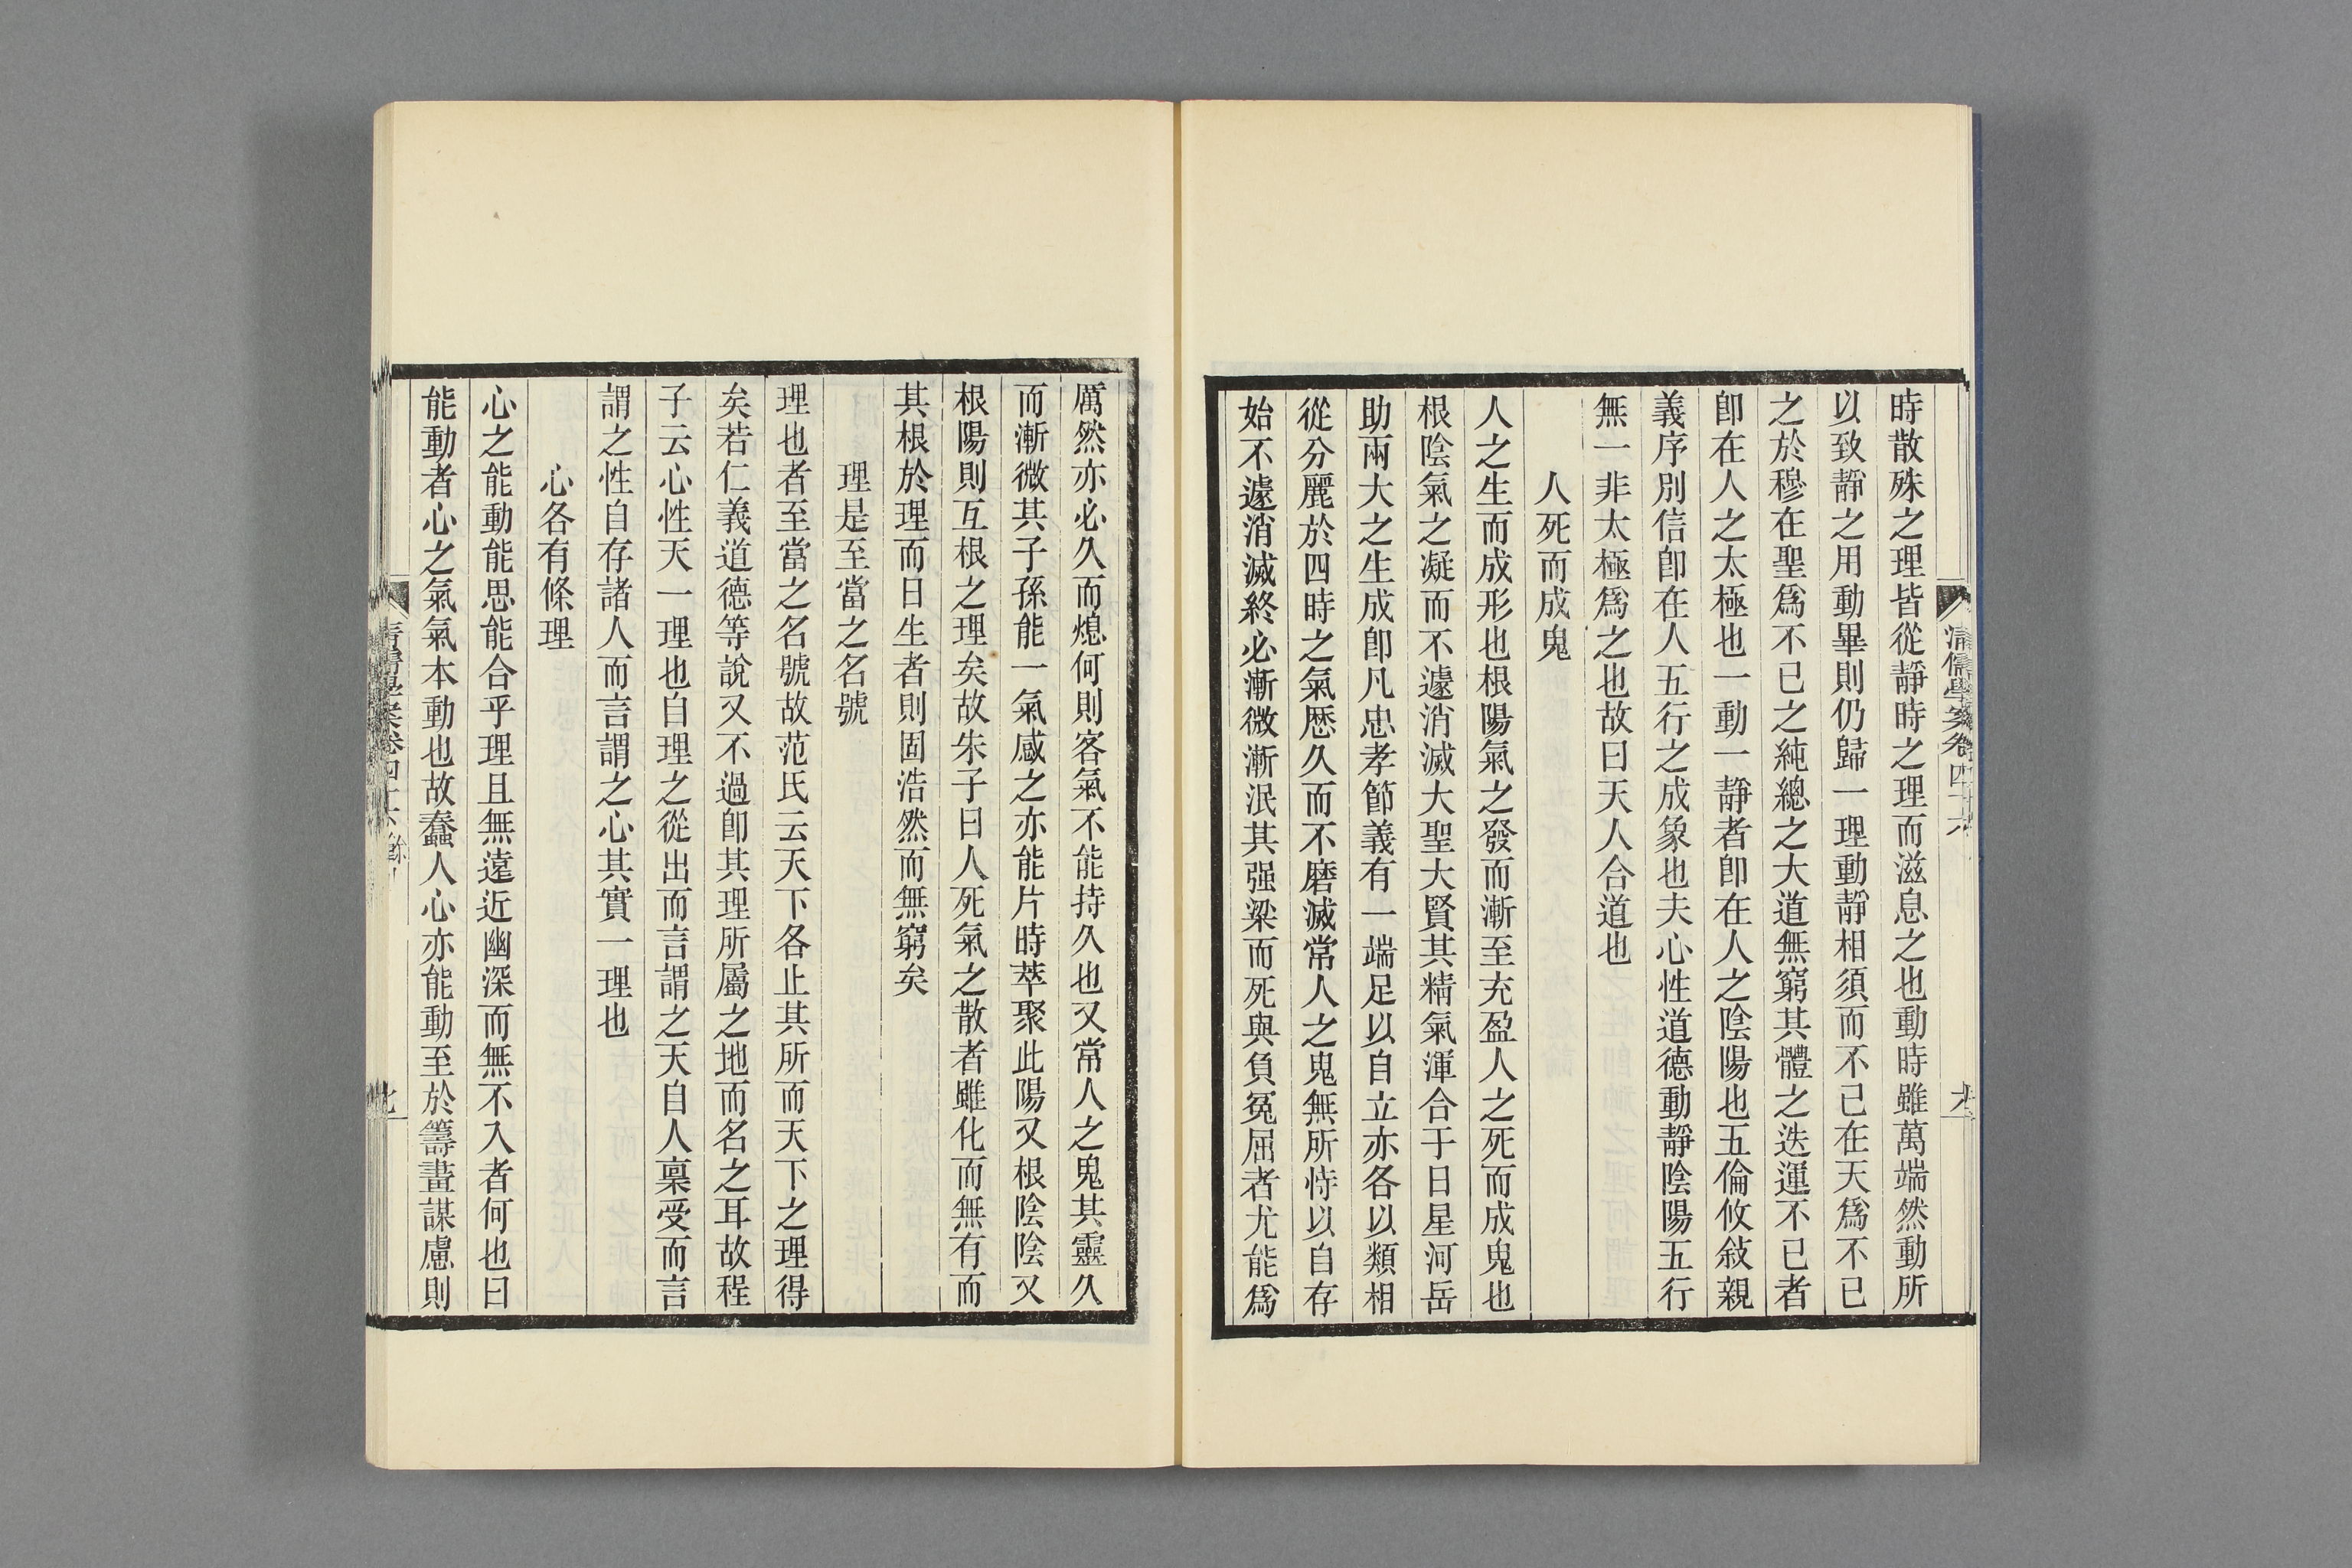 清儒學案卷四十六
時散殊之理皆從靜時之理而滋息之也動時雖萬端然動所
以致靜之用動畢則仍歸一理動靜相須而不已在天爲不已
之於穆在聖爲不已之純總之大道無窮其體之迭運不已者
卽在人之太極也一動一靜者卽在人之陰陽也五倫攸敍親
義序別信卽在人五行之成象也夫心性道德動靜陰陽五行
無一非太極爲之也故曰天人合道也
人死而成鬼
人之生而成形也根陽氣之發而漸至充盈人之死而成鬼也
根陰氣之凝而不遽消滅大聖大賢其精氣渾合于日星河岳
助兩大之生成卽凡忠孝節義有一端足以自立亦各以類相
從分麗於四時之氣歷久而不磨滅常人之鬼無所恃以自存
始不遽消滅終必漸微漸泯其强梁而死與負冤屈者尤能爲
厲然亦必久而熄何則客氣不能持久也又常人之鬼其靈久
而漸微其子孫能一氣感之亦能片時萃聚此陽又根陰陰又
根陽則互根之理矣故朱子曰人死氣之散者雖化而無有而
其根於理而日生者則固浩然而無窮矣
理是至當之名號
理也者至當之名號故范氏云天下各止其所而天下之理得
矣若仁義道德等說又不過卽其理所屬之地而名之耳故程
子云心性天一理也自理之從出而言謂之天自人稟受而言
謂之性自存諸人而言謂之心其實一理也
心各有條理
心之能動能思能合乎理且無遠近幽深而無不入者何也曰
能動者心之氣氣本動也故蠢人心亦能動至於籌畫謀慮則